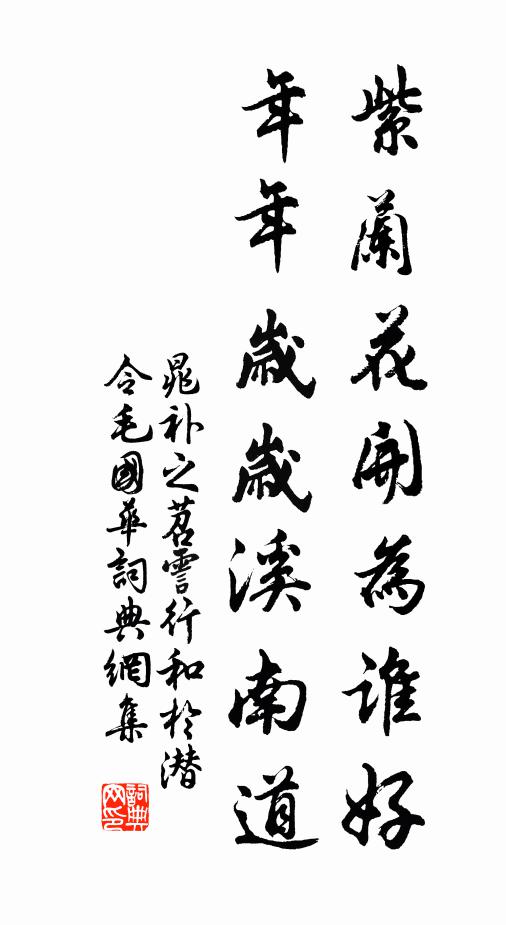 紫蘭花開為誰好
年年歲歲溪南道
晁补之苕霅行和於潜
令毛國華詞典網集
詞典
网印